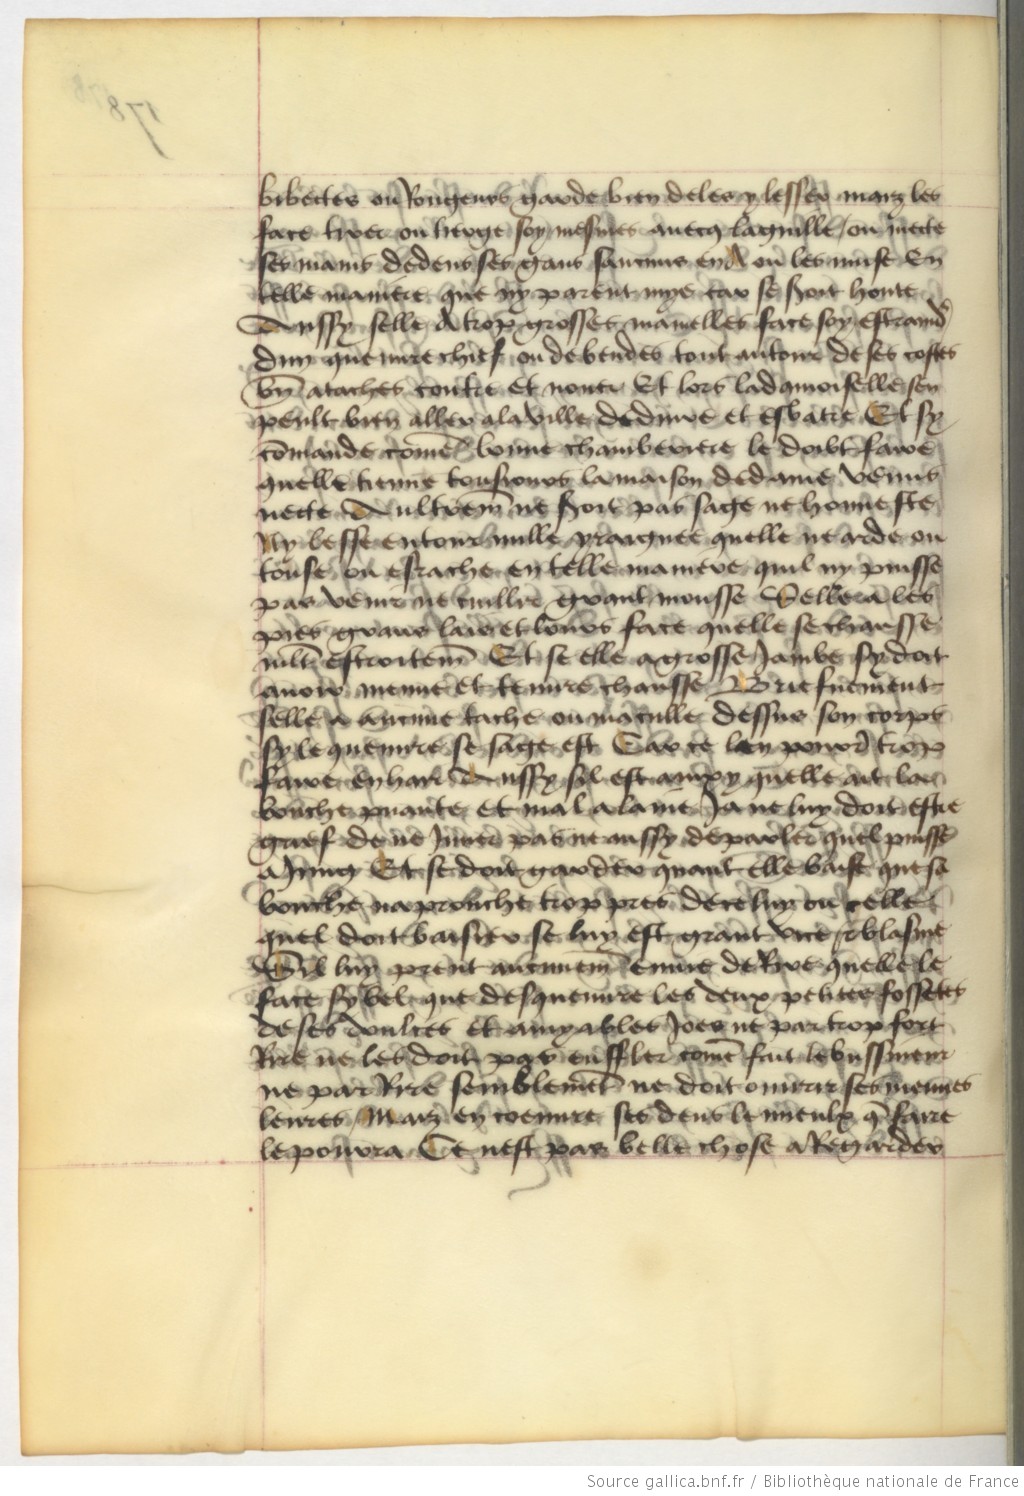 bibectes ou Rougeurs garde bien de les y lesser maiz les
face tirer ou herge soy mesmes auecq laguille / ou mecte
ses mains dedens ses gans saucune en A ou les muse En
telle maniere que ny parent mye car se seroit honte
Aussy selle A trop grosses mamelles face soy estraind
dun queuurechief ou de bendes tout autour de ses costes
bn ataches coutre et nouer Et lors la damoiselle sen
peult bien aller a la ville deduire et esbatre Et sy
cōmande cōme bonne chamberiere le doibt faire
quelle tienne tousiours la maison de dame venus
necte Aultremt ne seroit pas sage ne honneste
Ny lesse entour nulle yraignee quelle ne arde ou
touse ou esrache en telle maniere quil ny puisse
pas venir ne cuillir grant mousse Selle a les
pies grans lais et lours face quelle se chausse
mlt estroitemt Et se elle a grosse Jambe sy doit
auoir menue et tenure chausse Briefuement
selle a aucune tache ou maculle dessus son corps
sy le queuure se sage est Car ce len pourroit trop
faire enhair Aussy sil est ainxy quelle ait la
bouche puante et mal alaine Ja ne luy doit estre
grief de ne Juner pas ne aussy de parler quel puisse
a Jung Et se doit garder quant elle baise que sa
bouche naprouche trop pres de celuy ou celle
quel doit baisier se luy est grant vice & blasme
Sil luy prent aucunemt enuie de Rire quelle le
face sy bel que desqueuure les deux petites fossetes
de ses doulces et amyables Joes ne par trop fort
Rire ne les doit pas enffler cōme fait le bussineur
ne par Rire semblemēt ne doit ouurir ses menues
leures / Maiz en coeuure ses dens le mieulx q̄ faire
le pourra Ce nest pas belle chose a Regarder
Source gallica.bnf.fr / Bibliothèque nationale de France